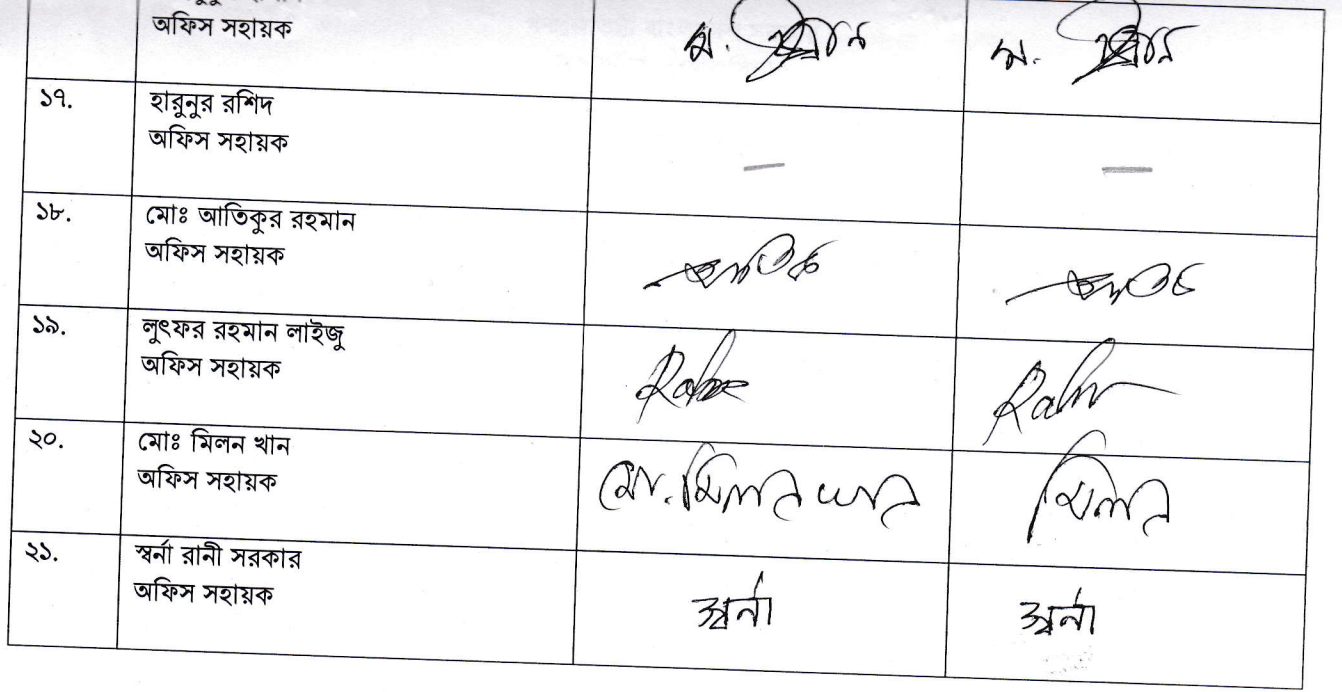 অফিস সহায়ক
১৭.
হারুনুর রশিদ
অফিস সহায়ক
—
—
১৮.
মোঃ আতিকুর রহমান
অফিস সহায়ক
আতিক
আতিক
১৯.
লুৎফর রহমান লাইজু
অফিস সহায়ক
২০.
মোঃ মিলন খান
অফিস সহায়ক
মো. মিলন খান
মিলন
২১.
স্বর্না রানী সরকার
অফিস সহায়ক
স্বর্না
স্বর্না